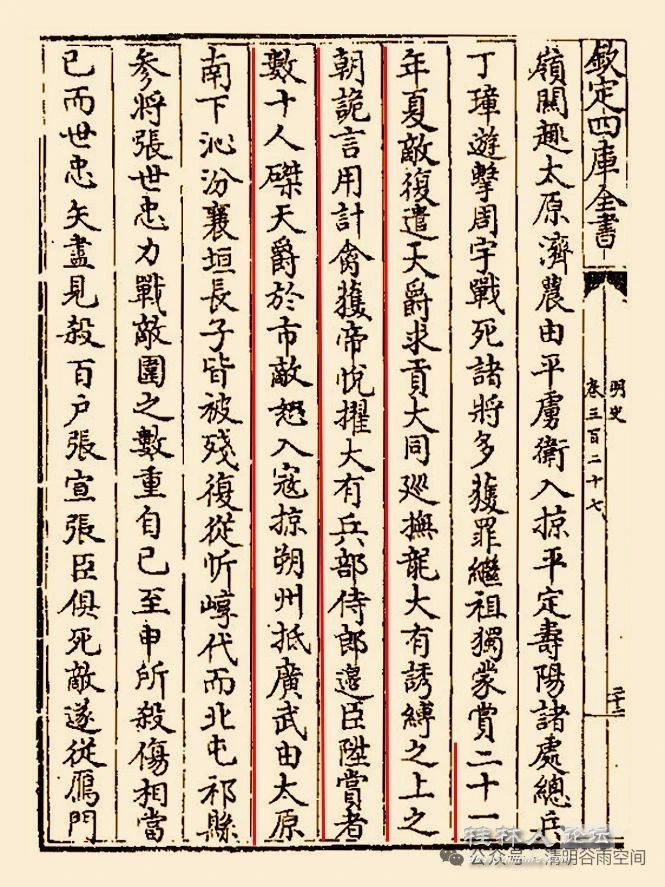 欽定四庫全書
明史
卷三百二十七
嶺關趣太原濟農由平虜衛入掠平定壽陽諸處總兵
丁璋遊擊周宇戰死諸將多獲罪繼祖獨蒙賞二十一
年夏敵復遣天爵求貢大同巡撫龍大有誘縛之上之
朝詭言用計禽獲帝悅擢大有兵部侍郎邊臣陞賞者
數十人磔天爵於市敵怒入寇掠朔州抵廣武由太原
南下沁汾襄垣長子皆被殘復從忻崞代而北屯祁縣
參將張世忠力戰敵圍之數重自巳至申所殺傷相當
已而世忠矢盡見殺百户張宣張臣俱死敵遂從鴈門
桂林人论坛
公众号 清明谷雨空间